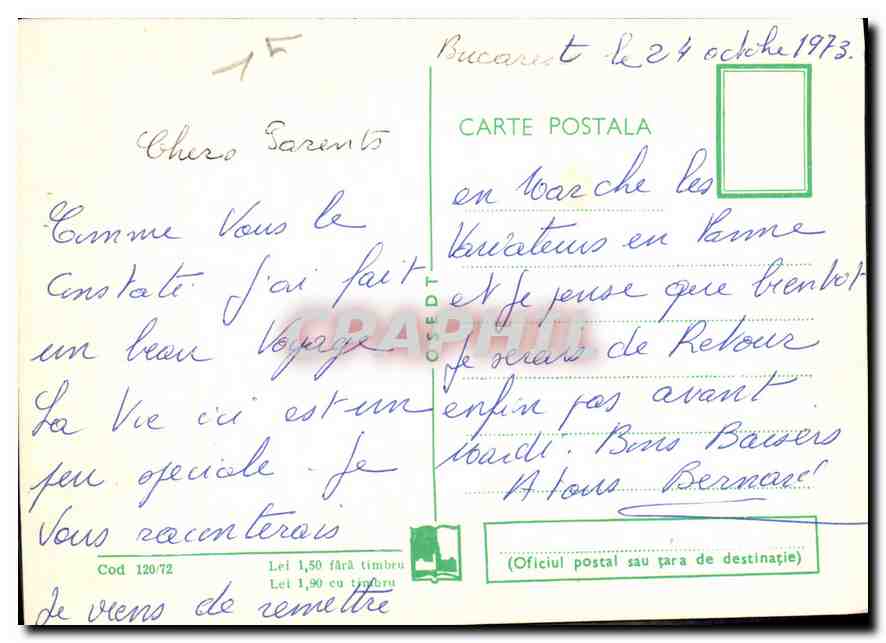 1F
Bucarest le 24 octobre 1973.
Chers Parents
Comme Vous le
Constaté j'ai fait
un beau Voyage
La Vie ici est un
peu speciale. Je
Vous raconterais
Je viens de remettre
en Marche les
Variateurs en Panne
et Je pense que bientot
Je serais de Retour
enfin pas avant
Mardi. Bons Baisers
A tous Bernard
CARTE POSTALA
OSEDT
CPAPHIL
Cod 120/72
Lei 1,50 fără timbru
Lei 1,90 cu timbru
(Oficiul postal sau țara de destinație)